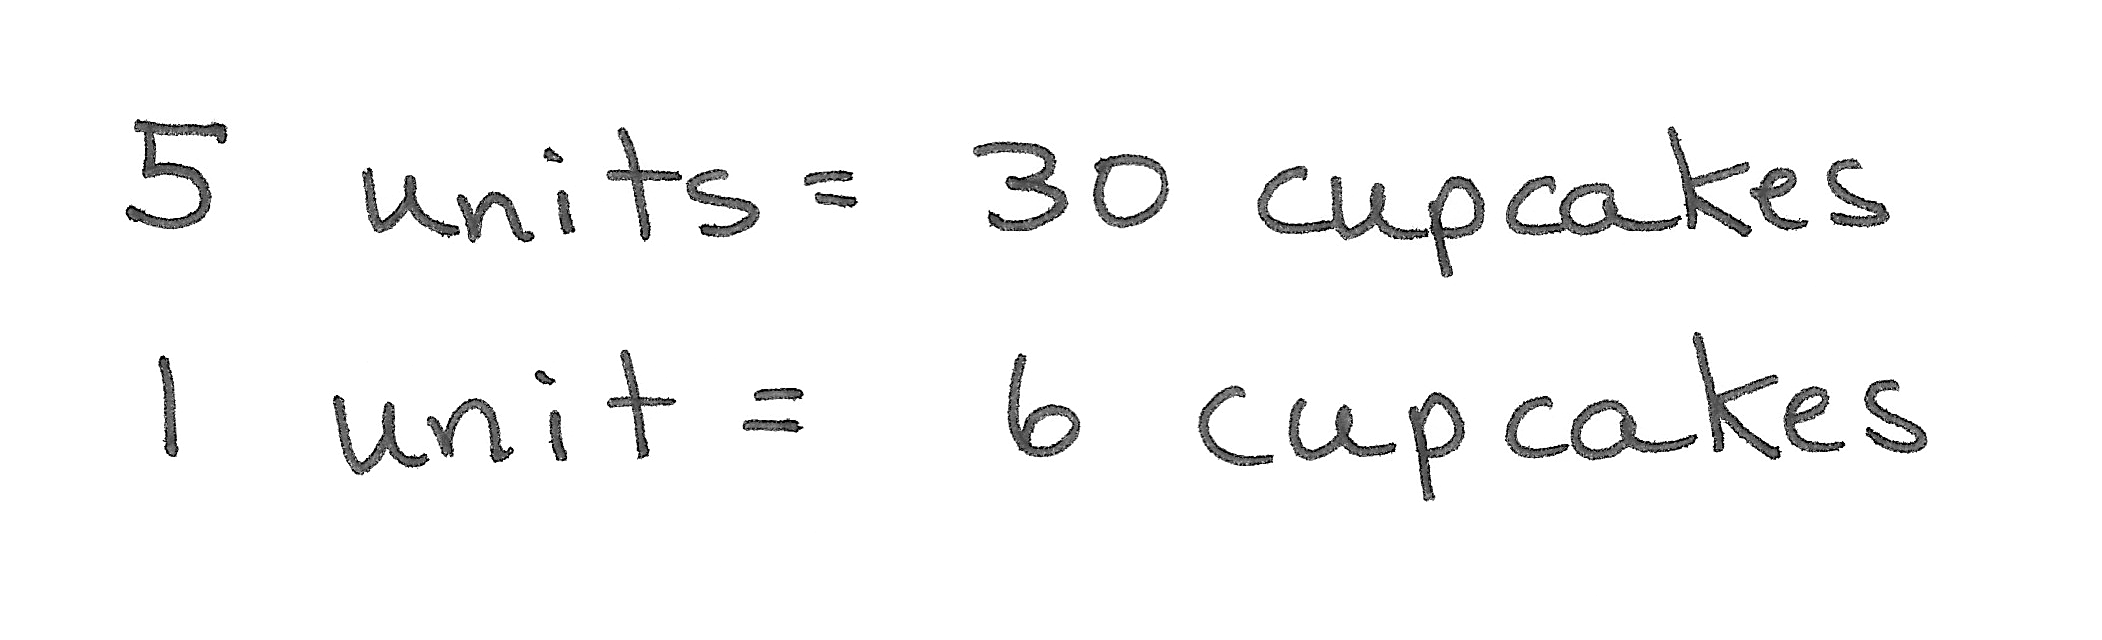 5 units = 30 cupcakes
1 unit = 6 cupcakes